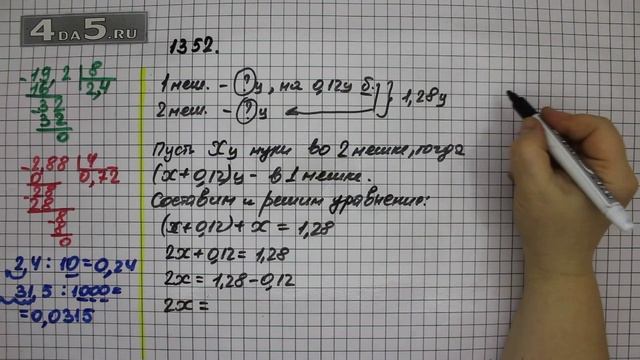 4DA5.RU
1352.
1 меш. - ? ц, на 0,12 ц б. } 1,28 ц
2 меш. - ? ц
Пусть X ц муки во 2 мешке, тогда
(x+0,12) ц - в 1 мешке.
Составим и решим уравнение:
(x+0,12)+x = 1,28
2x+0,12 = 1,28
2x = 1,28-0,12
2x =
19,2 | 8
16 | 2,4
32
32
0
2,88 | 4
0 | 0,72
28
28
8
8
0
2,4 : 10 = 0,24
31,5 : 1000 =
= 0,0315